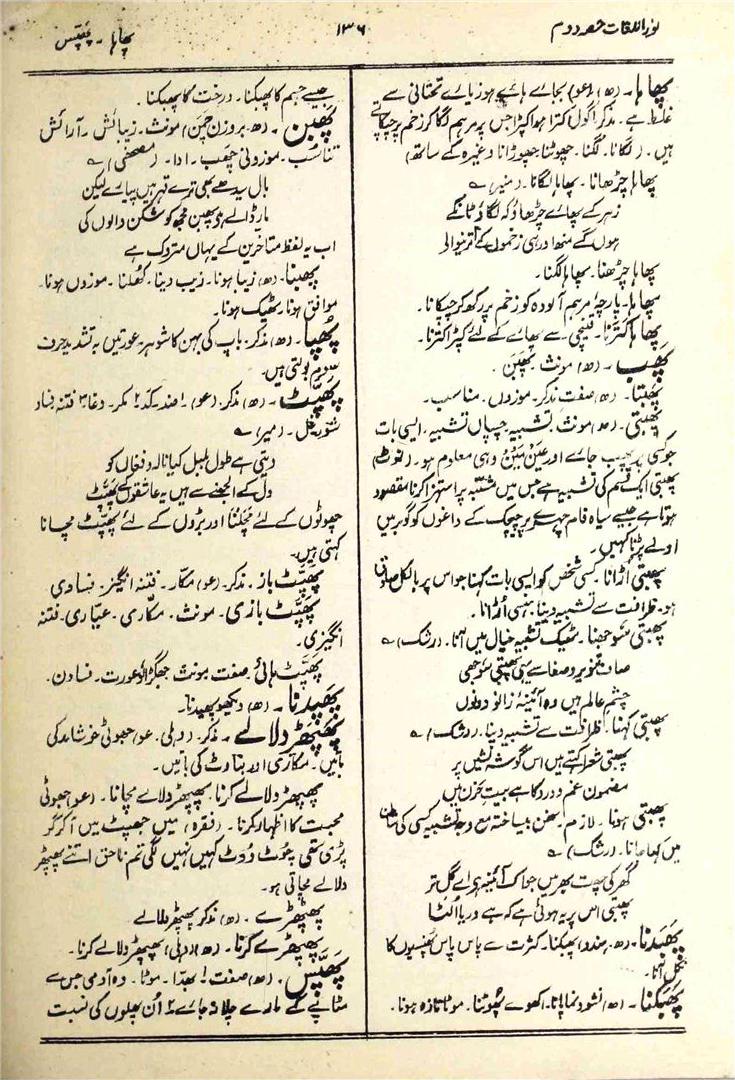 نور اللغات حصہ دوم
۱۳۶
پھاہا ۔ پھپّس
پھاہا ۔ (ھ) (عو) بجائے ہائے ہوز یائے تحتانی سے
غلط ہے۔ مذکر۔ گول کترا ہوا کپڑا جس پر مرہم لگا کر زخم پر چپکاتے
ہیں۔ (لگانا۔ لگنا۔ چھوٹنا چھوڑانا وغیرہ کے ساتھ)
پھاہا چڑھانا۔ پھاہا لگانا۔ (منیر) ؎
زہر کے پھائے چڑھاؤ کہ لگاؤ ٹانکے
ہوں گے منھ اور ہی زخموں کے اُترنیوالی
پھاہا چڑھنا۔ پھاہا لگنا۔
پھاہا۔ پارچۂ مرہم آلودہ کو زخم پر رکھ کر چپکانا۔
پھاہا کترنا۔ قینچی سے پھاہے کے لئے کپڑا کترنا۔
پھَب ۔ (ھ) مونث۔ پھَبَن۔
پھَبتا۔ (ھ) صفت مذکر۔ موزوں۔ مناسب۔
پھبتی۔ (ھ) مونث۔ تشبیہ۔ چسپاں تشبیہ۔ ایسی بات
جو کسی پر پھب جائے اور عین مین وہی معلوم ہو۔ (نوٹ)
پھبتی ایک قسم کی تشبیہ ہے جس میں مشتبہ پر استہزا کرنا مقصود
ہوتا ہے جیسے سیاہ فام چہرے پر چیچک کے داغوں کو گوبر میں
اولے پڑنا کہیں۔
پھبتی اُڑانا۔ کسی شخص کو ایسی بات کہنا جو اس پر بالکل صادق
ہو۔ ظرافت سے تشبیہ دینا۔ ہنسی اُڑانا۔
پھبتی سوجھنا۔ ٹھیک تشبیہ خیال میں آنا۔ (رشک) ؎
صاف تنویر و صفا سے یہی پھبتی سوجھی
چشم عالم ہیں وہ آئینۂ زانو دونوں
پھبتی کہنا۔ ظرافت سے تشبیہ دینا۔ (رشک) ؎
پھبتی شعرا کہتے ہیں اس گوشہ نشیں پر
مضمون غم و درد کا ہے بیت حزن میں
پھبتی ہونا۔ لازم۔ سخن بیساختہ مع وجہ تشبیہ کسی کی شان
میں کہا جانا۔ (رشک) ؎
گھر کی چھت پھر میں جو اک آئینہ ہی اے گل تر
پھبتی اس پر یہ ہوئی ہے کہ ہے دریا اُلٹا
پھَبَدنا۔ (ھ۔ ہندو) پھبکنا۔ کثرت سے پاس پاس پھنسیوں کا
نکل آنا۔
پھَبَکنا۔ (ھ) نشو و نما پانا۔ اکھوے پھوٹنا۔ موٹا تازہ ہونا۔
جیسے جسم کا پھبکنا۔ درخت کا پھبکنا۔
پھَبَن ۔ (ھ۔ بروزن چمن) مونث۔ زیبائش۔ آرائش
تناسُب۔ موزونی۔ چھَب۔ ادا۔ (مصحفی) ؎
بال سیدھے بھی ترے قہر ہیں پیارے لیکن
مار ڈالے ہے پھبن مجھ کو شکن والوں کی
اب یہ لفظ متاخرین کے یہاں متروک ہے
پھبنا۔ (ھ) زیبا ہونا۔ زیب دینا۔ کھُلنا۔ موزوں ہونا۔
موافق ہونا۔ ٹھیک ہونا۔
پھُپا۔ (ھ) مذکر۔ باپ کی بہن کا شوہر۔ عورتیں بہ تشدید حرف
سوم بولتی ہیں۔
پھَپَّٹ ۔ (ھ) مذکر۔ (عو) ۱ ضد۔ کَد ۲ مکر۔ دغا ۳ فتنہ فساد
شور و غل۔ (میر) ؎
دیتی ہے طول بلبل کیا نالہ و فغاں کو
دل کے الجھنے سے ہیں یہ عاشقوں کے پھپّٹ
چھوٹوں کے لئے مَچَلنا اور بڑوں کے لئے پھَپّٹ مچانا
کہتی ہیں۔
پھَپَّٹ باز۔ مذکر۔ (عو) مکّار۔ فتنہ انگیز۔ فسادی
پھَپَّٹ بازی۔ مونث۔ مکّاری۔ عیّاری۔ فتنہ
انگیزی۔
پھَپَّٹ ہائی۔ صفت مونث۔ جھگڑالو عورت۔ فسادن۔
پھَپدنا۔ (ھ) دیکھو پھبدنا۔
پھپھڑ دلالے ۔ مذکر۔ (دہلی۔ عو) جھوٹی خوشامد کی
باتیں۔ مکاری اور بناوٹ کی باتیں۔
پھپھڑ دلالے کرنا۔ پھپھڑ دلالے مچانا۔ (عو) جھوٹی
محبت کا اظہار کرنا۔ (فقرہ) میں جھپٹ میں آ کر گر
پڑی تھی یہ چوٹ ووٹ کہیں نہیں لگی تم ناحق اتنے پھپھڑ
دلالے مچاتی ہو۔
پھپھڑے۔ (ھ) مذکر پھپھڑ دلالے
پھپھڑے کرنا۔ (ھ) (دہلی) پھپھڑ دلالے کرنا۔
پھَپّس۔ (ھ) صفت ۱ بھدّا۔ موٹا۔ وہ آدمی جس سے
مٹاپے کے مارے چلا نہ جائے ۲ اُن پھلوں کی نسبت